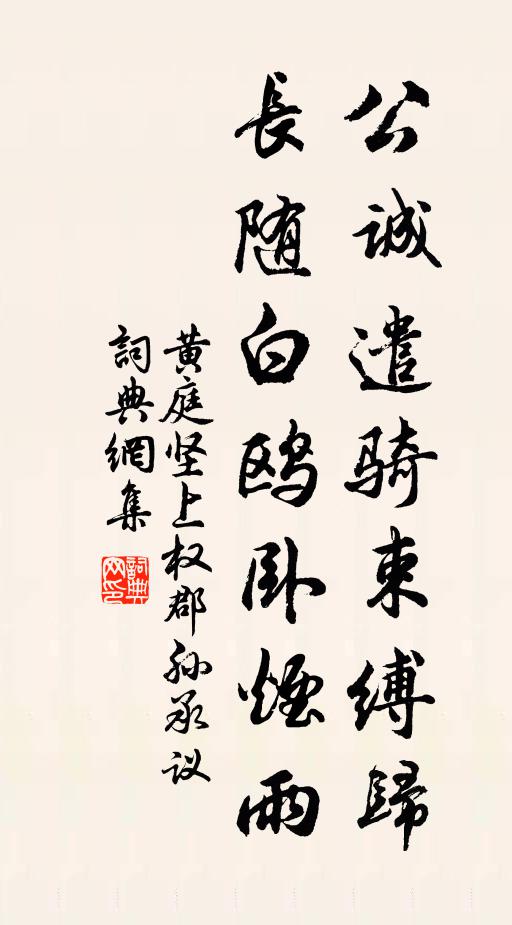 公诚遣骑束缚歸
長随白鸥卧煙雨
黄庭坚上权郡孙承议
詞典網集
詞典网印